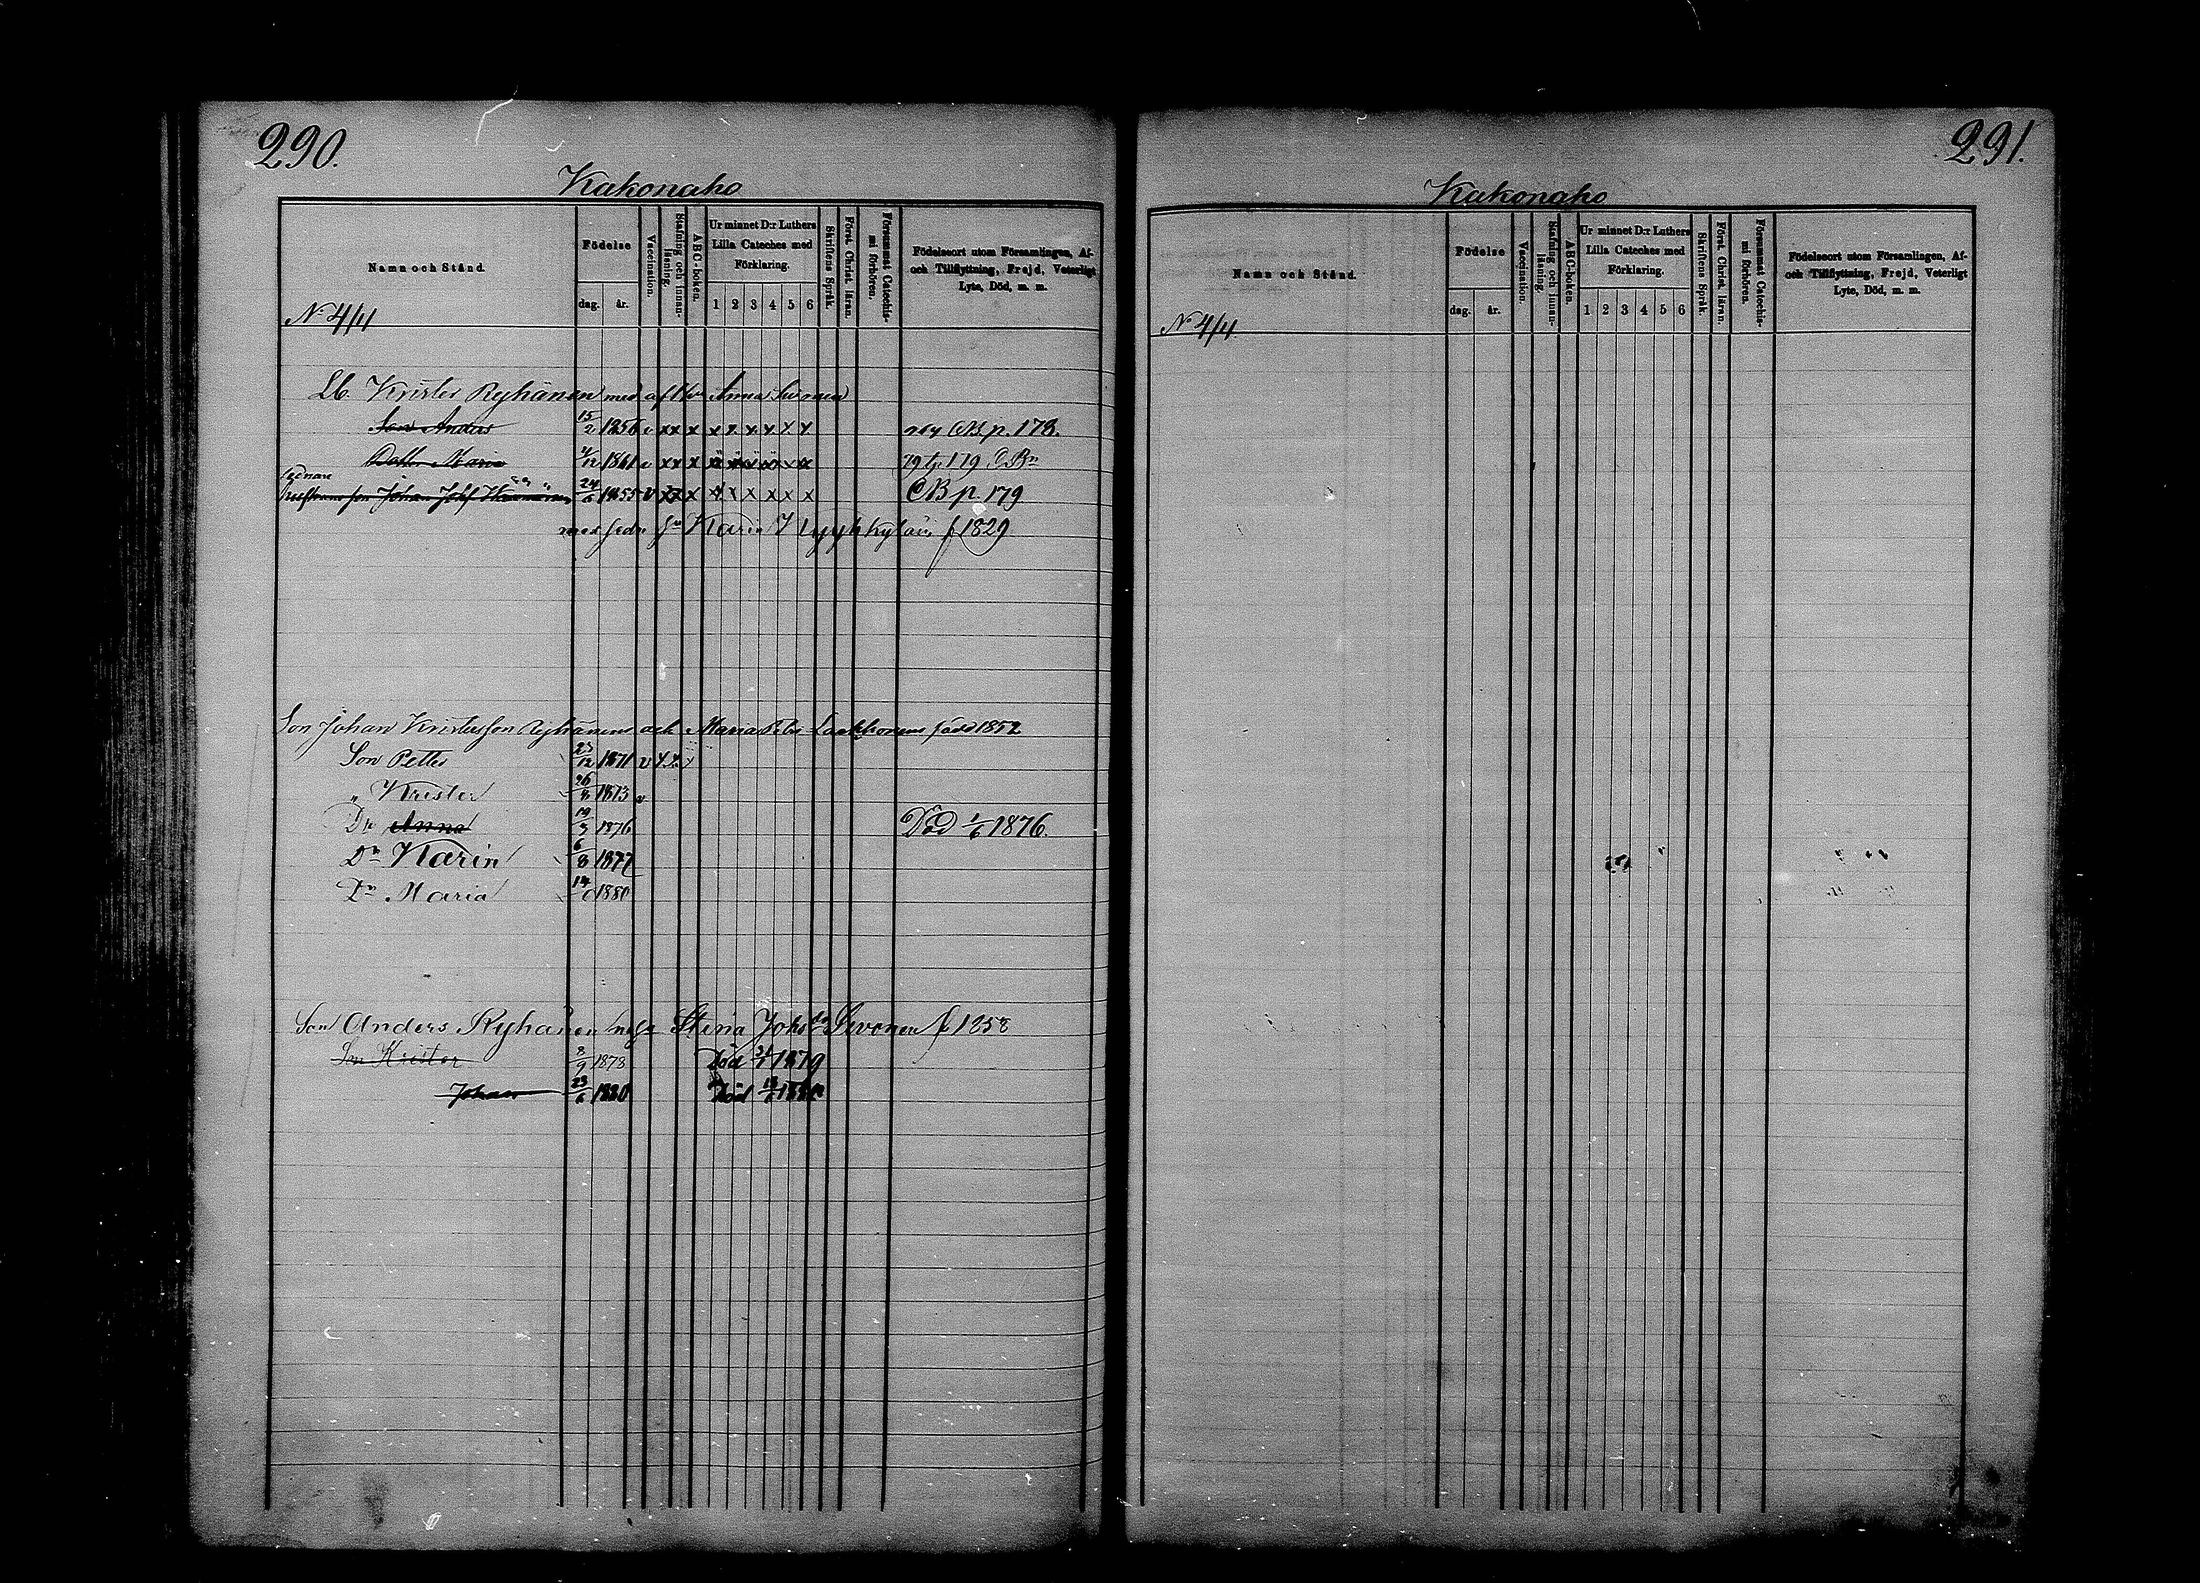 290.
Kakonaho
Namn och Stånd.
Födelse
dag.
år.
Vaccination.
Stafning och innan-
läsning.
ABC-boken.
Ur minnet D:r Luthers
Lilla Cateches med
Förklaring.
1 2 3 4 5 6
Skriftens Språk.
Först. Christ. läran.
Försummat Catechis-
mi förhören.
Födelseort utom Församlingen, Af-
och Tillflyttning, Frejd, Veterligt
Lyte, Död, m. m.
N 4/11
Lb. Krister Ryhänen med afl. Anna
Son Anders 15/2 1856 v xx x x x x x x x CB p. 178.
Maria 4/12 1861 v xx x 79 p 179
son Johan Josef 24/6 1855 v xx x x x x x x x CB p. 179
Karin f 1829
Son Johan Kristersson Ryhänens och Maria född 1852
Son Petter 23/12 1871 v
" Krister 26/8 1873 v
Dr Anna 19/3 1876 Död 1/6 1876.
Dr Karin 6/8 1877
Dr Maria 14/6 1880
Son Anders Ryhänen Stina Johsdr Sivonen f 1858
Son Krister 8/9 1878 Död 1879
Johan 23/6 1880 Död
291.
Kakonaho
Namn och Stånd.
Födelse
dag.
år.
Vaccination.
Stafning och innan-
läsning.
ABC-boken.
Ur minnet D:r Luthers
Lilla Cateches med
Förklaring.
1 2 3 4 5 6
Skriftens Språk.
Först. Christ. läran.
Försummat Catechis-
mi förhören.
Födelseort utom Församlingen, Af-
och Tillflyttning, Frejd, Veterligt
Lyte, Död, m. m.
N 4/11.